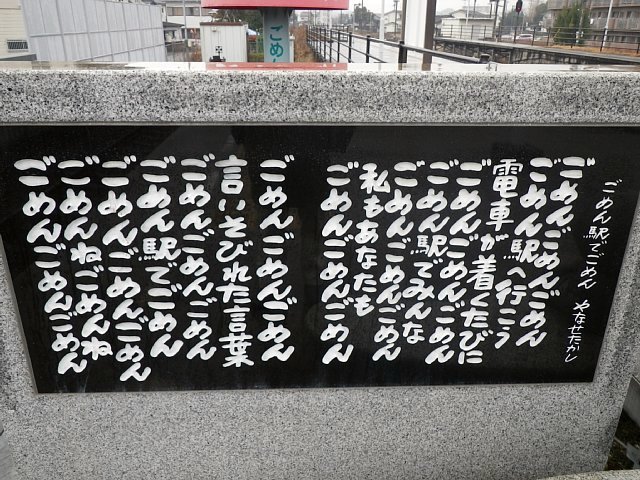 ごめん駅でごめん やなせたかし
ごめんごめんごめん
ごめん駅へ行こう
電車が着くたびに
ごめんごめんごめん
ごめん駅でみんな
ごめんごめんごめん
私もあなたも
ごめんごめんごめん
ごめんごめんごめん
言いそびれた言葉
ごめんごめんごめん
ごめん駅でごめん
ごめんごめんごめん
ごめんねごめんね
ごめんごめんごめん
ごめ